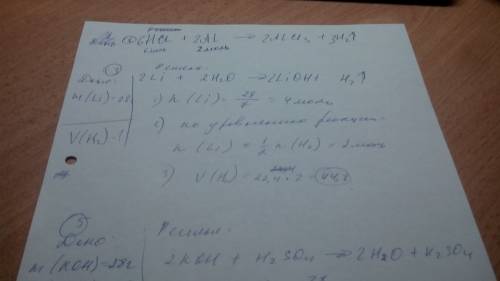 Решение
Дано 6HCl + 2Al → 2AlCl₃ + 3H₂↑
6 моль 2 моль
Дано: Решение:
2Li + 2H₂O → 2LiOH + H₂↑
m(Li)=28
1) n(Li) = 28/7 = 4 моль
V(H₂)-?
2) по уравнению реакции
n(Li) = 1/2 n(H₂) = 2 моль
3) V(H₂) = 22,4 · 2 = 44,8
5
Дано: Решение:
m(KOH)=28г
2KOH + H₂SO₄ → 2H₂O + K₂SO₄